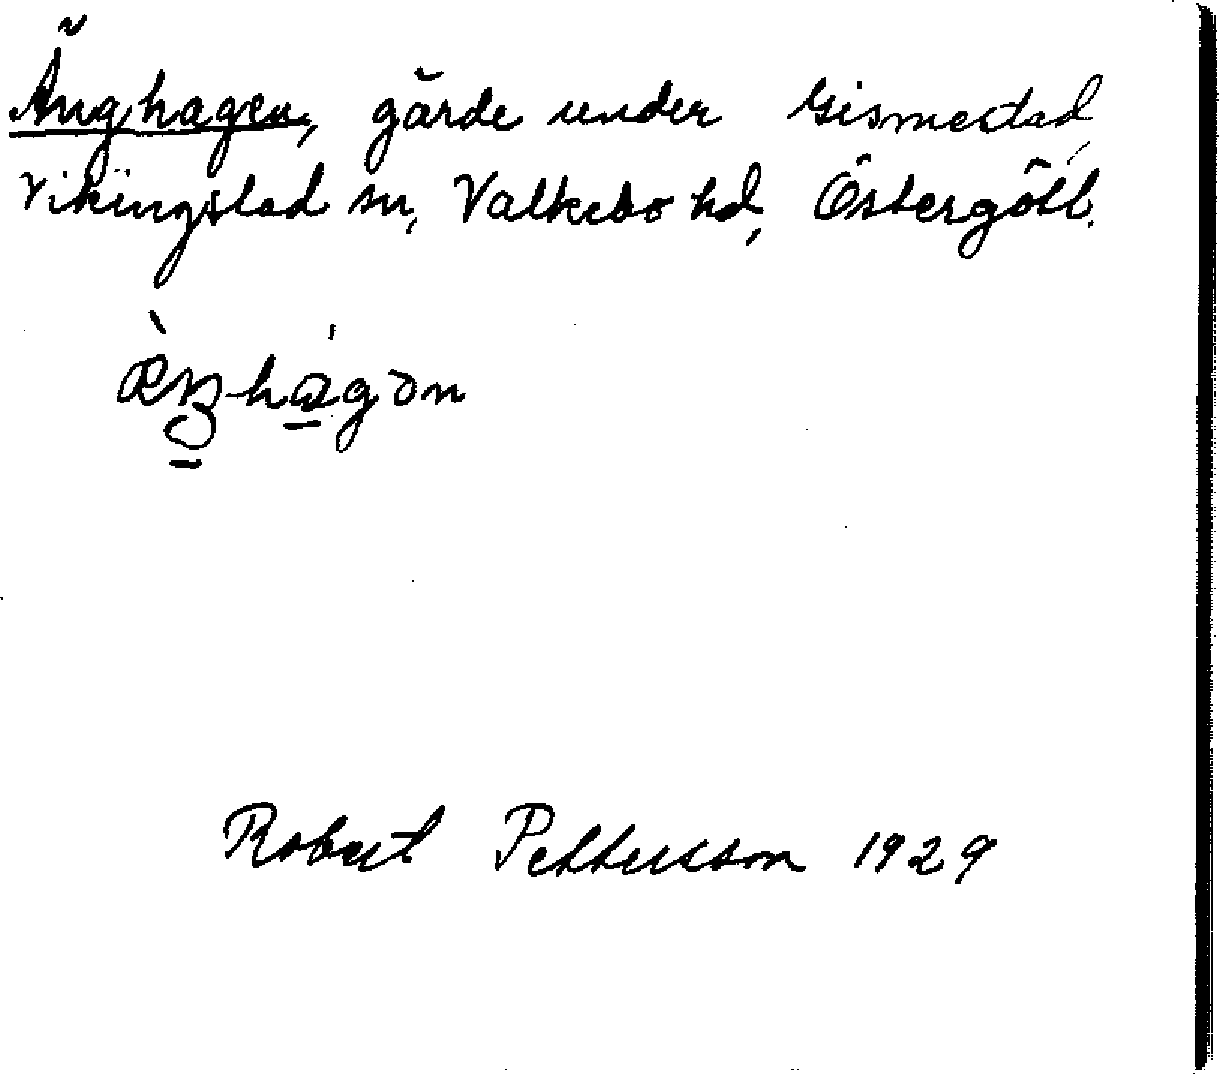 Änghagen, gärde under Gismestad,
Vikingstad sn, Valkebo hd, Östergötl.
Robert Pettersson 1929